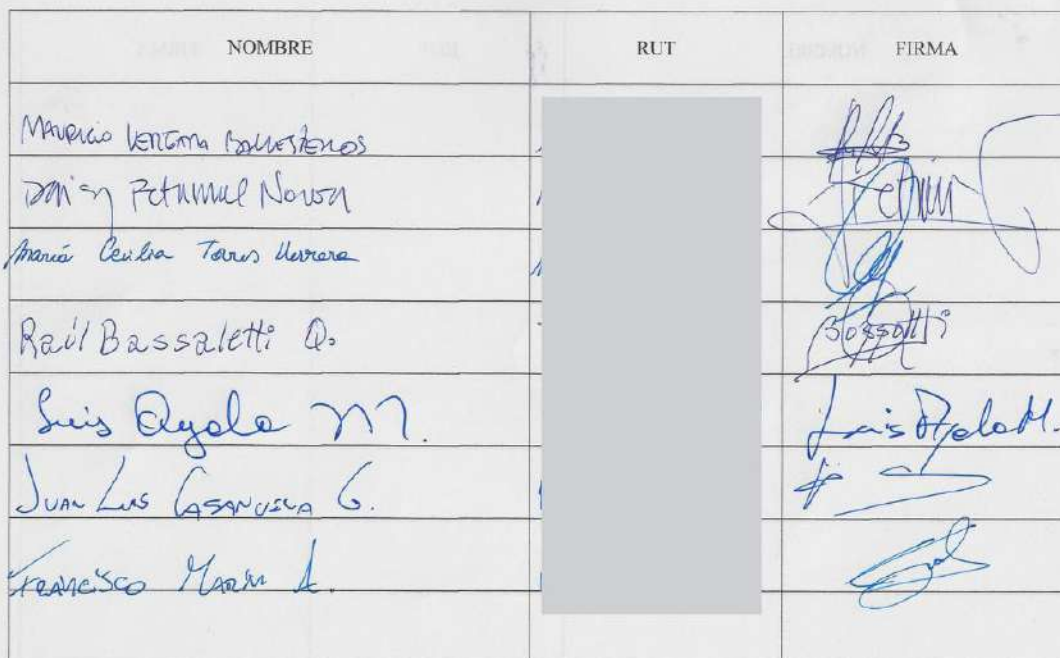 NOMBRE RUT FIRMA
Mauricio Ballesteros
Petumul Novoa
María Cecilia Torres Herrera
Raúl Bassaletti Q. Bassaltti
Luis Ayala M. Luis Ayala M.
Juan Luis Casanueva G.
Francisco Marín A.